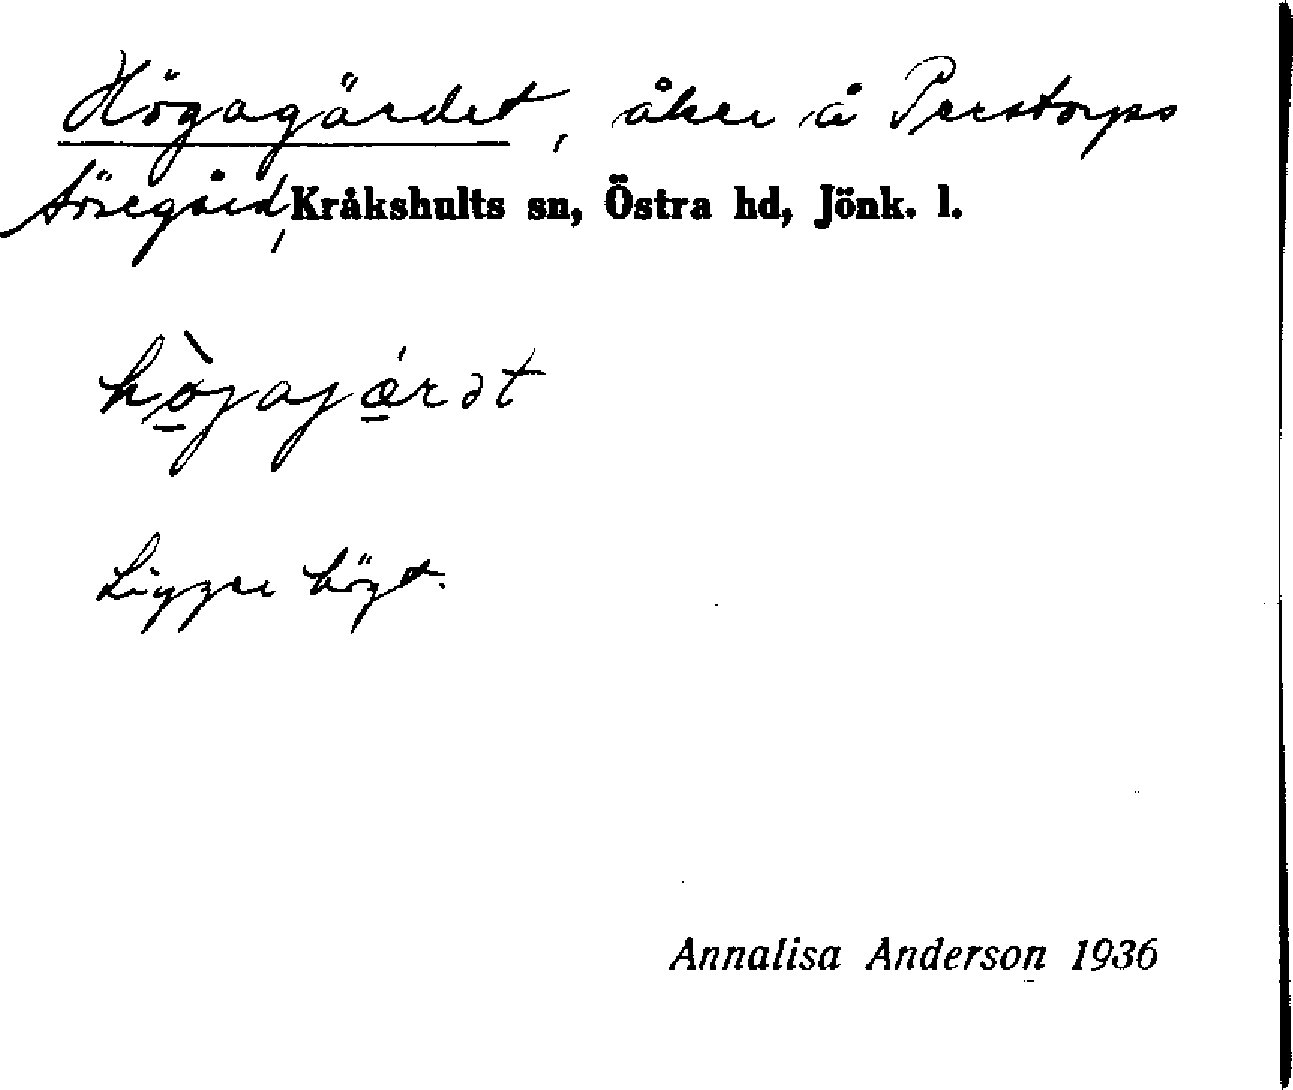 Högagärdet, åker å Perstorps
Söregård, Kråkshults sn, Östra hd, Jönk. l.
hö̀gagä́rdət
Ligger högt.
Annalisa Anderson 1936